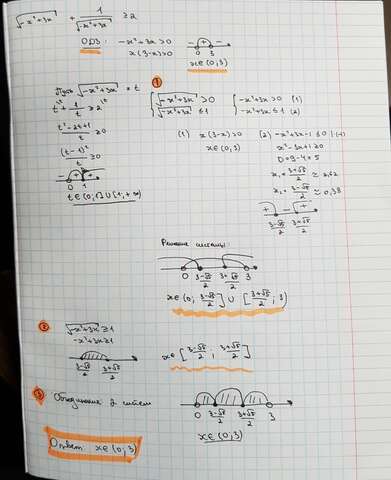 √-x²+3x + 1/√-x²+3x ≥ 2
ОДЗ: -x²+3x>0
x(3-x)>0
- + -
0 3
x∈(0;3)
Пусть √-x²+3x = t
t + 1/t ≥ 2
t²-2t+1/t ≥ 0
(t-1)²/t ≥ 0
- + +
0 1
t∈(0;1]∪[1;+∞)
①
{ √-x²+3x > 0
√-x²+3x ≤ 1
{ -x²+3x>0 (1)
-x²+3x≤1 (2)
(1) x(3-x)>0
x∈(0,3)
(2) -x²+3x-1≤0 |·(-1)
x²-3x+1≥0
D=9-4=5
x₁= 3+√5/2 ≈ 2,62
x₂= 3-√5/2 ≈ 0,38
+ - +
3-√5/2 3+√5/2
Решение системы
0 3-√5/2 3+√5/2 3
x∈(0; 3-√5/2] ∪ [3+√5/2; 3)
②
√-x²+3x ≥1
-x²+3x≥1
3-√5/2 3+√5/2
x∈[3-√5/2; 3+√5/2]
③ Объединение 2 систем
0 3-√5/2 3+√5/2 3
x∈(0;3)
Ответ: x∈(0;3)